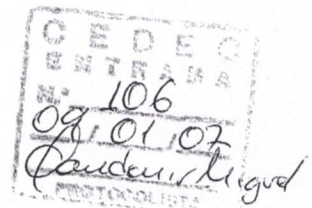 CEDEC
ENTRADA
N.º 106
09/01/07
Miguel
PROTOCOLISTA